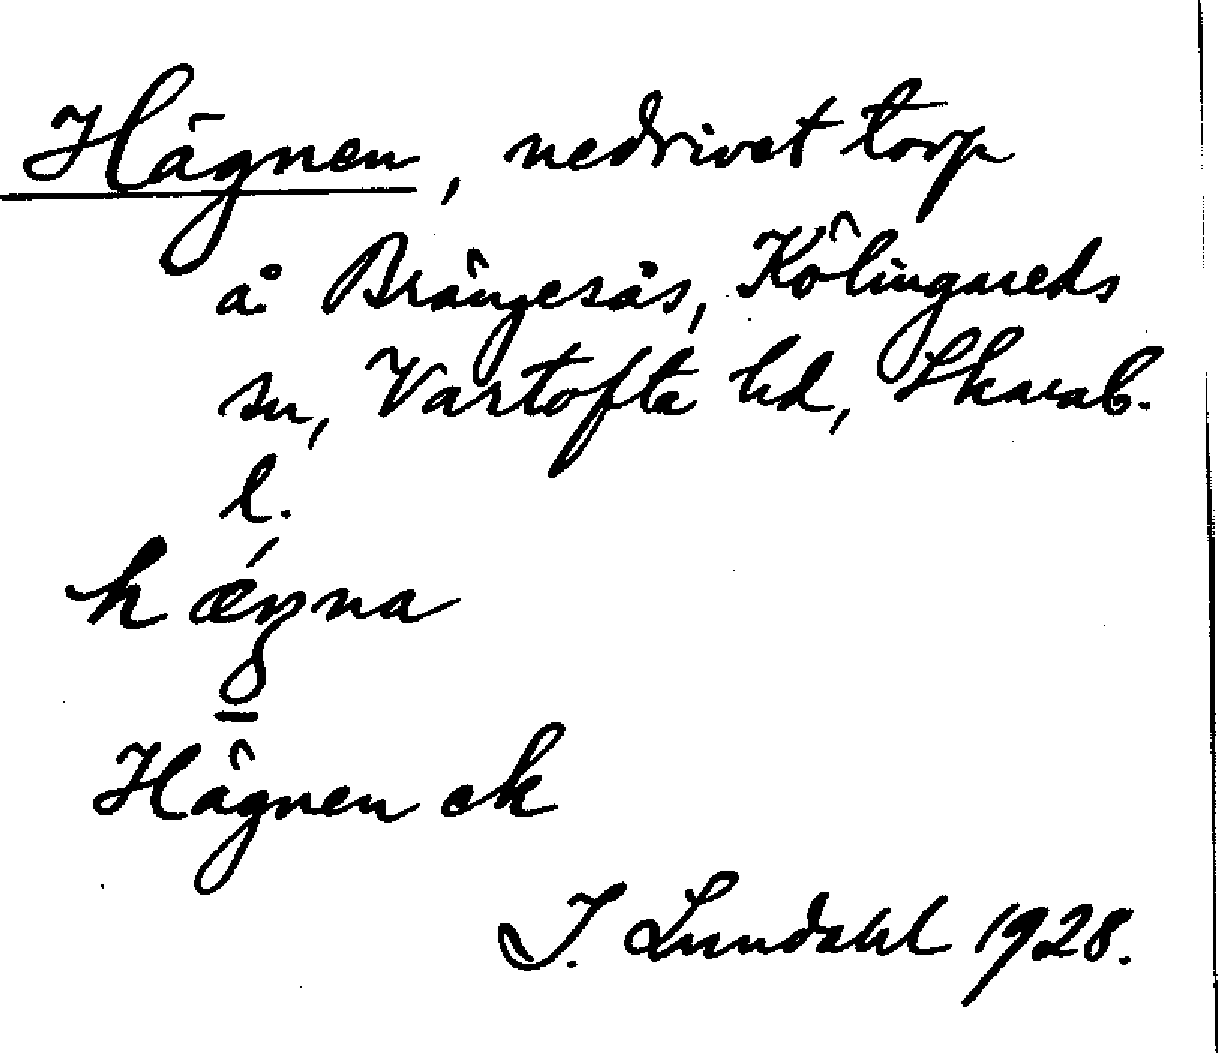 Hägnen, nedrivet torp
å Brängesås, Kölingareds
sn, Vartofta hd, Skarab.
l.
hǽŋna
Hägnen ek
I. Lundahl 1928.